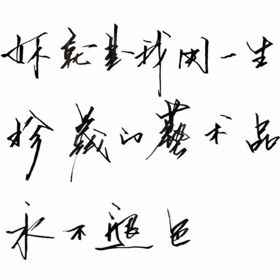 妳就是我用一生
珍藏的藝术品
永不褪色